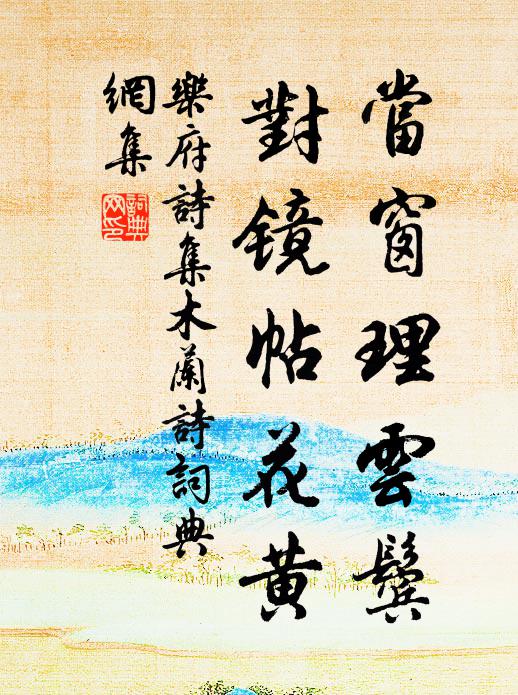 當窗理雲鬢
對镜帖花黄
樂府詩集木蘭詩詞典
網集
詞典
网印